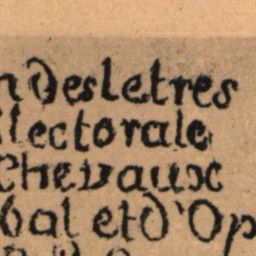 n des letres
lectorale
Chevaux
bal et d'Op